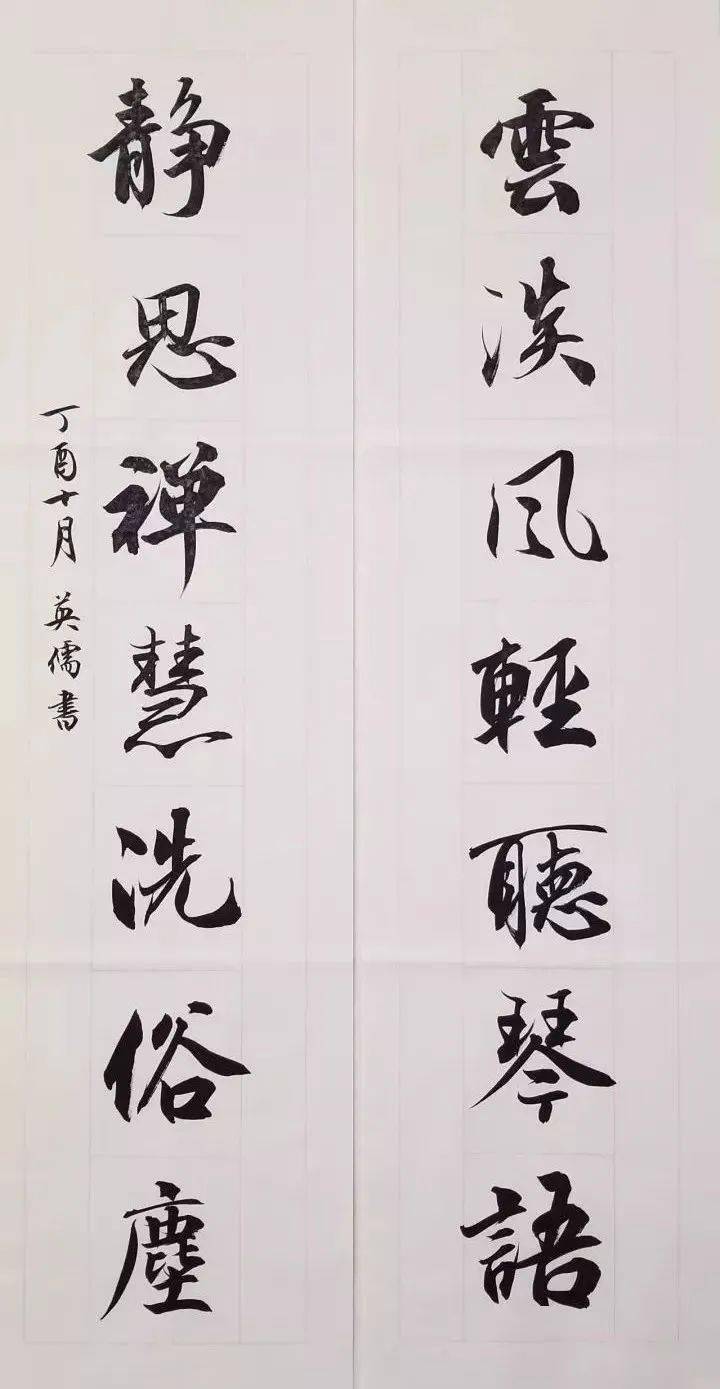 雲淡风輕聽琴語
静思禅慧洗俗塵
丁酉十月 英儒書